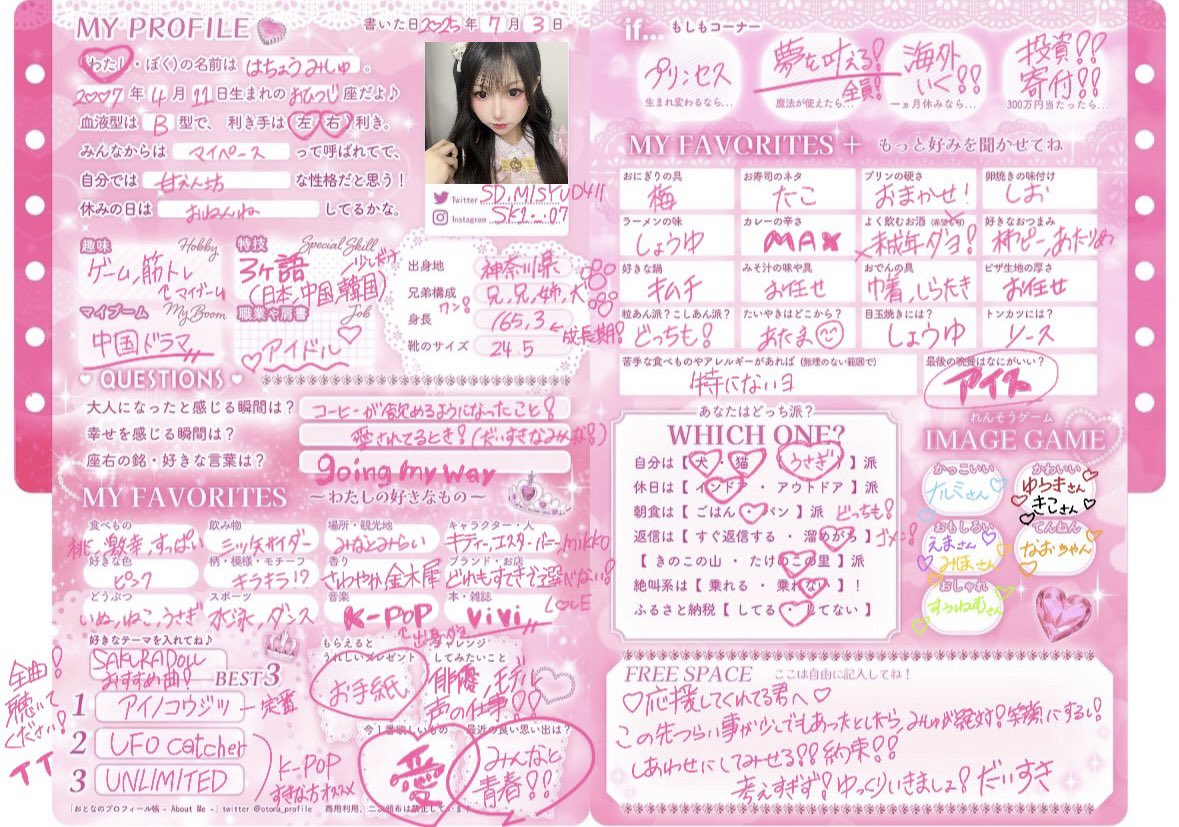 MY PROFILE
書いた日2025年 7月 3日
(わたし・ぼく)の名前は はちょうみしゅ 。
2007年 4月 11日生まれの おひつじ 座だよ♪
血液型は B 型で、 利き手は(左・右)利き。
みんなからは マイペース って呼ばれてて、
自分では 甘えん坊 な性格だと思う!
休みの日は おねんね してるかな。
Twitter SD_MISYU0411
Instagram
趣味 Hobby
ゲーム,筋トレ
マイブーム
特技 Special Skill
3ヶ語 少しだけ
(日本,中国,韓国)
マイブーム My Boom
中国ドラマ
職業や肩書 Job
♡アイドル♡
出身地 神奈川県
兄弟構成 兄,兄,姉,犬 ワン!
身長 165,3 ←成長期!
靴のサイズ 24.5
♥ QUESTIONS ♥
大人になったと感じる瞬間は? コーヒーが飲めるようになったこと!
幸せを感じる瞬間は? 愛されてるとき!(だいすきなみんな!)
座右の銘・好きな言葉は? going my way
MY FAVORITES ～わたしの好きなもの～
食べもの 桃,激辛,すっぱい
飲み物 三ッ矢サイダー
場所・観光地 みなとみらい
キャラクター・人 キティー,エスター・バニー,mikko
好きな色 ピンク
柄・模様・モチーフ キラキラ!?
香り さわやか,金木犀
ブランド・お店 どれもすてきで選べない!
どうぶつ いぬ,ねこ,うさぎ
スポーツ 水泳,ダンス
音楽 K-POP
本・雑誌 ViVi LOVE
好きなテーマを入れてね♪
SAKURADOLL
おすすめ曲!
BEST3
1 アイノコウジツ 一定番
2 UFO catcher
3 UNLIMITED
K-POP
すきな方オススメ
全曲!
聴いて
ください!
TT
もらえると
うれしいプレゼント
お手紙
チャレンジ
してみたいこと
俳優,モデル
声の仕事!!
今1番欲しいもの
愛
最近の良い思い出は?
みんなと
青春!!
「おとなのプロフィール帳 - About Me -」twitter @otona_profile 商用利用、二次頒布は禁止しています
if.... もしもコーナー
プリンセス
生まれ変わるなら...
夢を叶える!
全員!
魔法が使えたら...
海外
いく!!
一ヵ月休みなら...
投資!!
寄付!!
300万円当たったら...
MY FAVORITES + もっと好みを聞かせてね
おにぎりの具 梅
お寿司のネタ たこ
プリンの硬さ おまかせ!
卵焼きの味付け しお
ラーメンの味 しょうゆ
カレーの辛さ MAX
よく飲むお酒 未成年ダヨ!
好きなおつまみ 柿ピー,あたりめ
好きな鍋 キムチ
みそ汁の味や具 お任せ
おでんの具 巾着,しらたき
ピザ生地の厚さ お任せ
粒あん派?こしあん派? どっちも!
たいやきはどこから? あたま
目玉焼きには? しょうゆ
トンカツには? ソース
苦手な食べものやアレルギーがあれば (無理のない範囲で)
特にないヨ
最後の晩餐はなにがいい?
アイス
あなたはどっち派?
WHICH ONE?
自分は【 犬・猫 (うさぎ) 】派
休日は【 インドア ・ アウトドア 】派
朝食は【 ごはん・パン 】派 どっちも!
返信は【 すぐ返信する ・ 溜めがち 】ゴメン!
【 きのこの山 ・ たけのこの里 】派
絶叫系は【 乗れる ・ 乗れない 】!
ふるさと納税【 してる・してない 】
れんそうゲーム
IMAGE GAME
かっこいい
ナルミさん
かわいい
ゆらきさん
きこさん
おもしろい
えまさん
みほさん
てんねん
なおちゃん
おしゃれ
FREE SPACE ここは自由に記入してね!
♡応援してくれてる君へ♡
この先つらい事が少しでもあったとしたら,みしゅが絶対!笑顔にするし!
しあわせにしてみせる!!約束!!
考えすぎず!ゆっくりいきましょ!だいすき